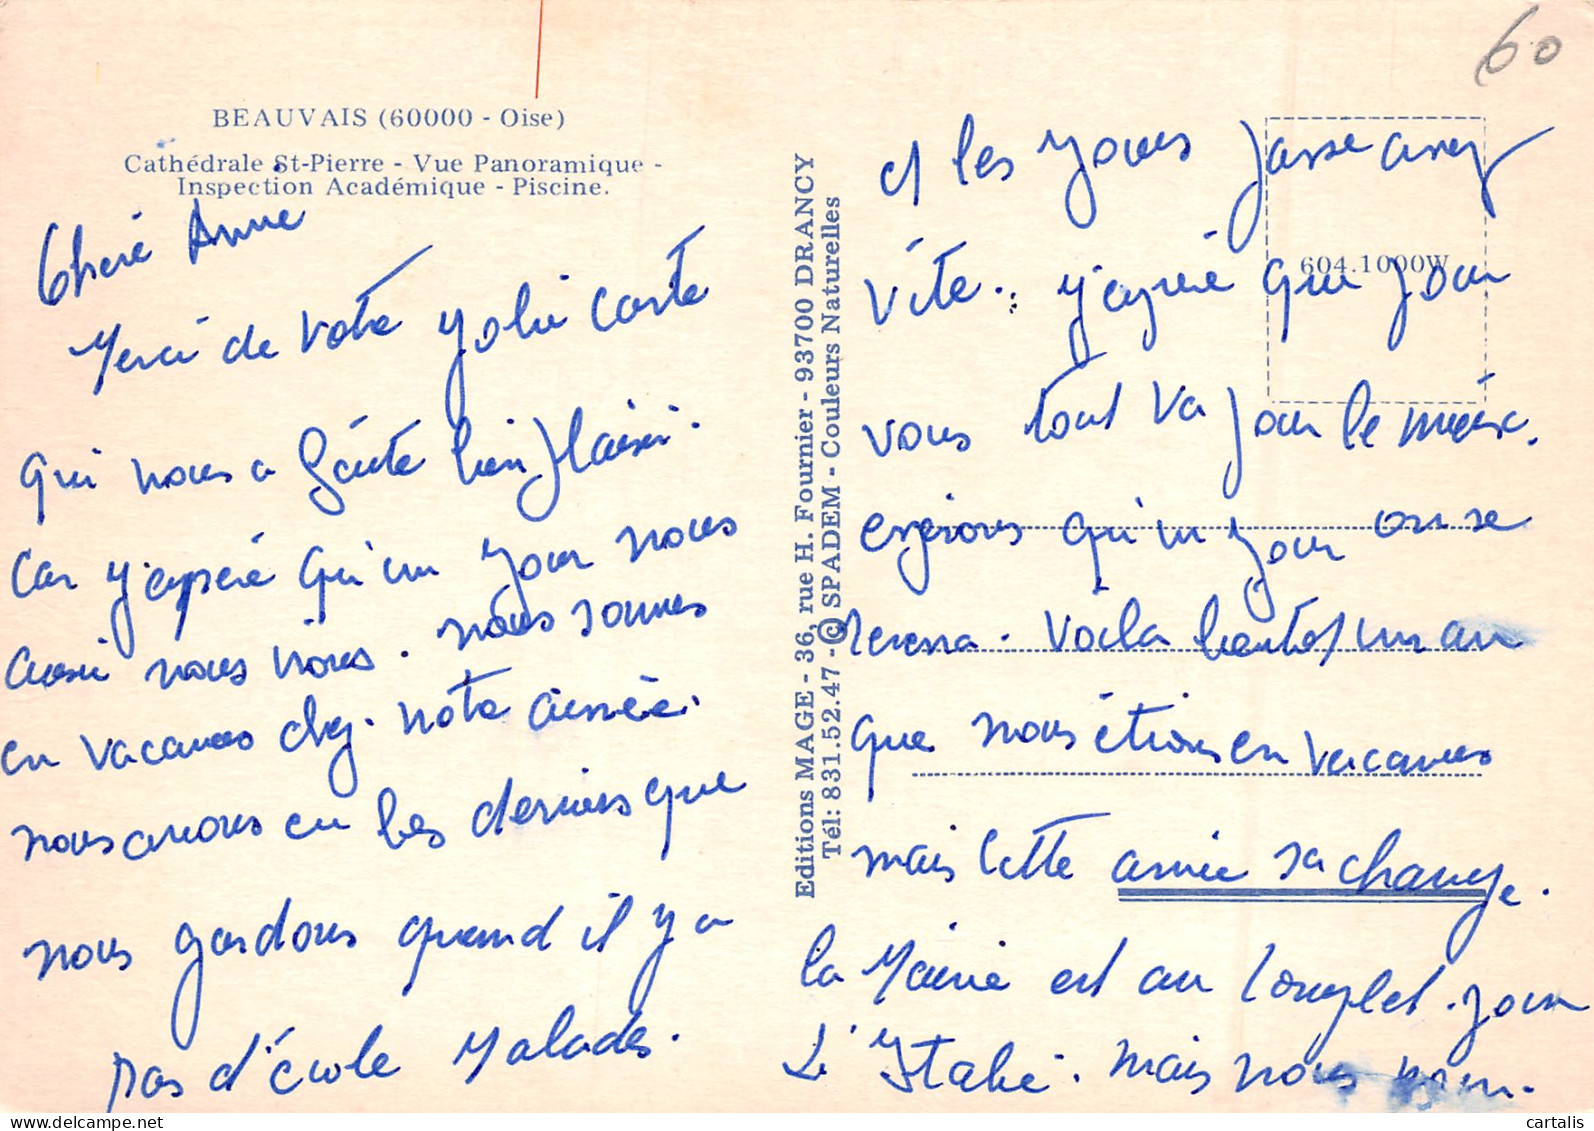 60
BEAUVAIS (60000 - Oise)
Cathédrale St-Pierre - Vue Panoramique -
Inspection Académique - Piscine.
Cheré Anne
Merci de votre Jolie carte
qui nous a faite bien plaisir.
car J'esperé qu'un Jour nous
ausi nous irons. nous sommes
en vacances chez. notre ainnée.
nous avons eu les derniers que
nous gardons quand il y a
pas d'école Malades.
Editions MAGE - 36, rue H. Fournier - 93700 DRANCY
Tél: 831.52.47 - © SPADEM - Couleurs Naturelles
604.1000W
et les Jours passe assez
vite. J'esperé que pour
vous tout va pour le mieux.
esperons qu'un jour on se
revera. Voila bientot un an
que nous étions en vacances
mais cette année sa change.
la Mairie est au complet. pour
L'Italie. mais nous non.
cartalis